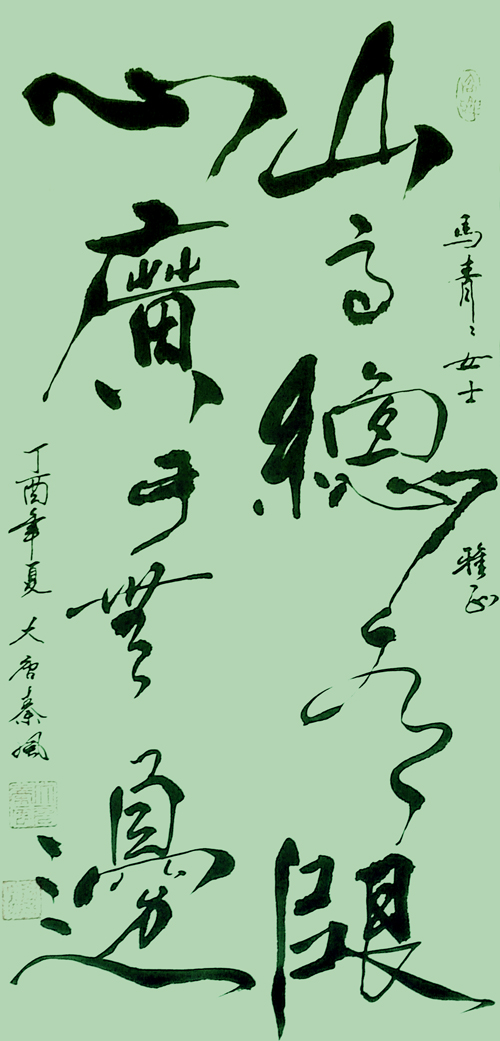 馬青〻女士
雅正
山高總有限
心廣才無邊
丁酉年夏
大唐秦風